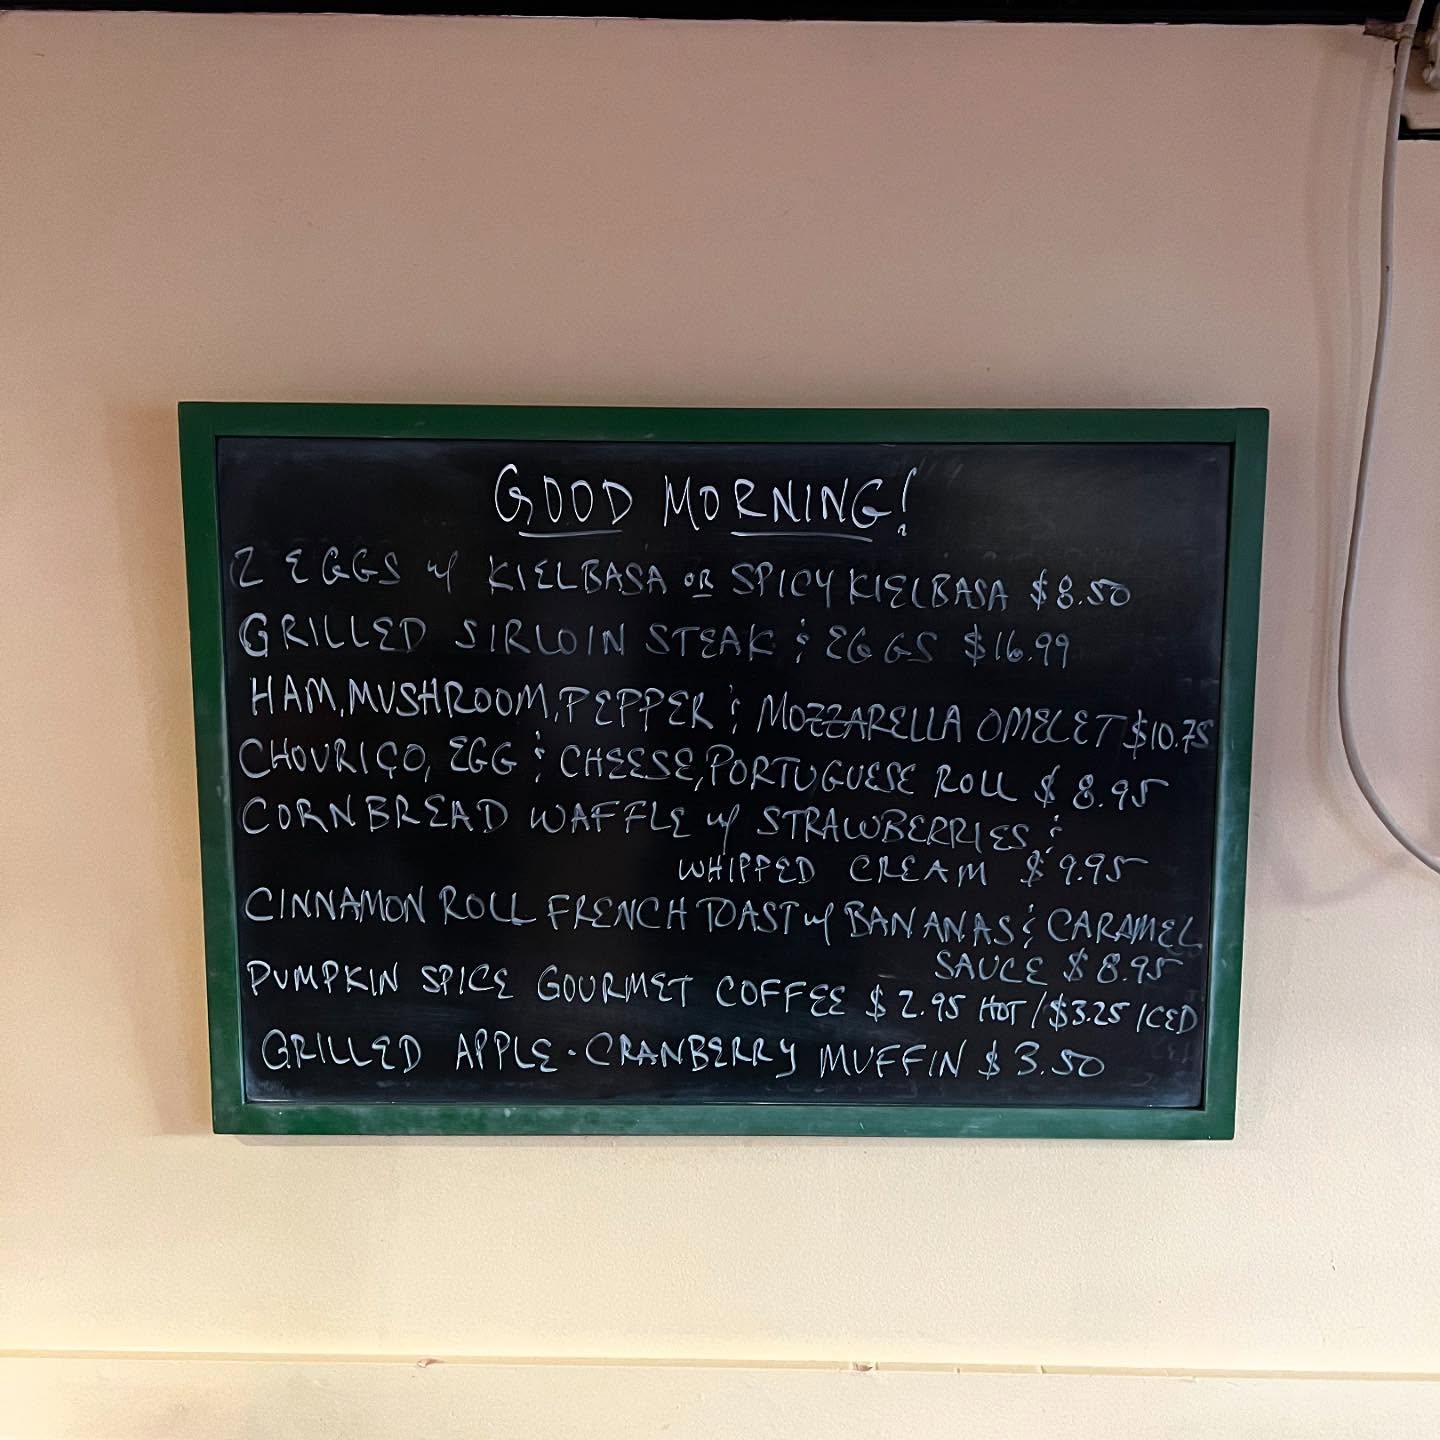 GOOD MORNING!
2 EGGS w/ KIELBASA OR SPICY KIELBASA $8.50
GRILLED SIRLOIN STEAK & EGGS $16.99
HAM, MUSHROOM, PEPPER & MOZZARELLA OMELET $10.75
CHOURIÇO, EGG & CHEESE, PORTUGUESE ROLL $8.95
CORNBREAD WAFFLE w/ STRAWBERRIES &
WHIPPED CREAM $9.95
CINNAMON ROLL FRENCH TOAST w/ BANANAS & CARAMEL
SAUCE $8.95
PUMPKIN SPICE GOURMET COFFEE $2.95 HOT / $3.25 ICED
GRILLED APPLE-CRANBERRY MUFFIN $3.50